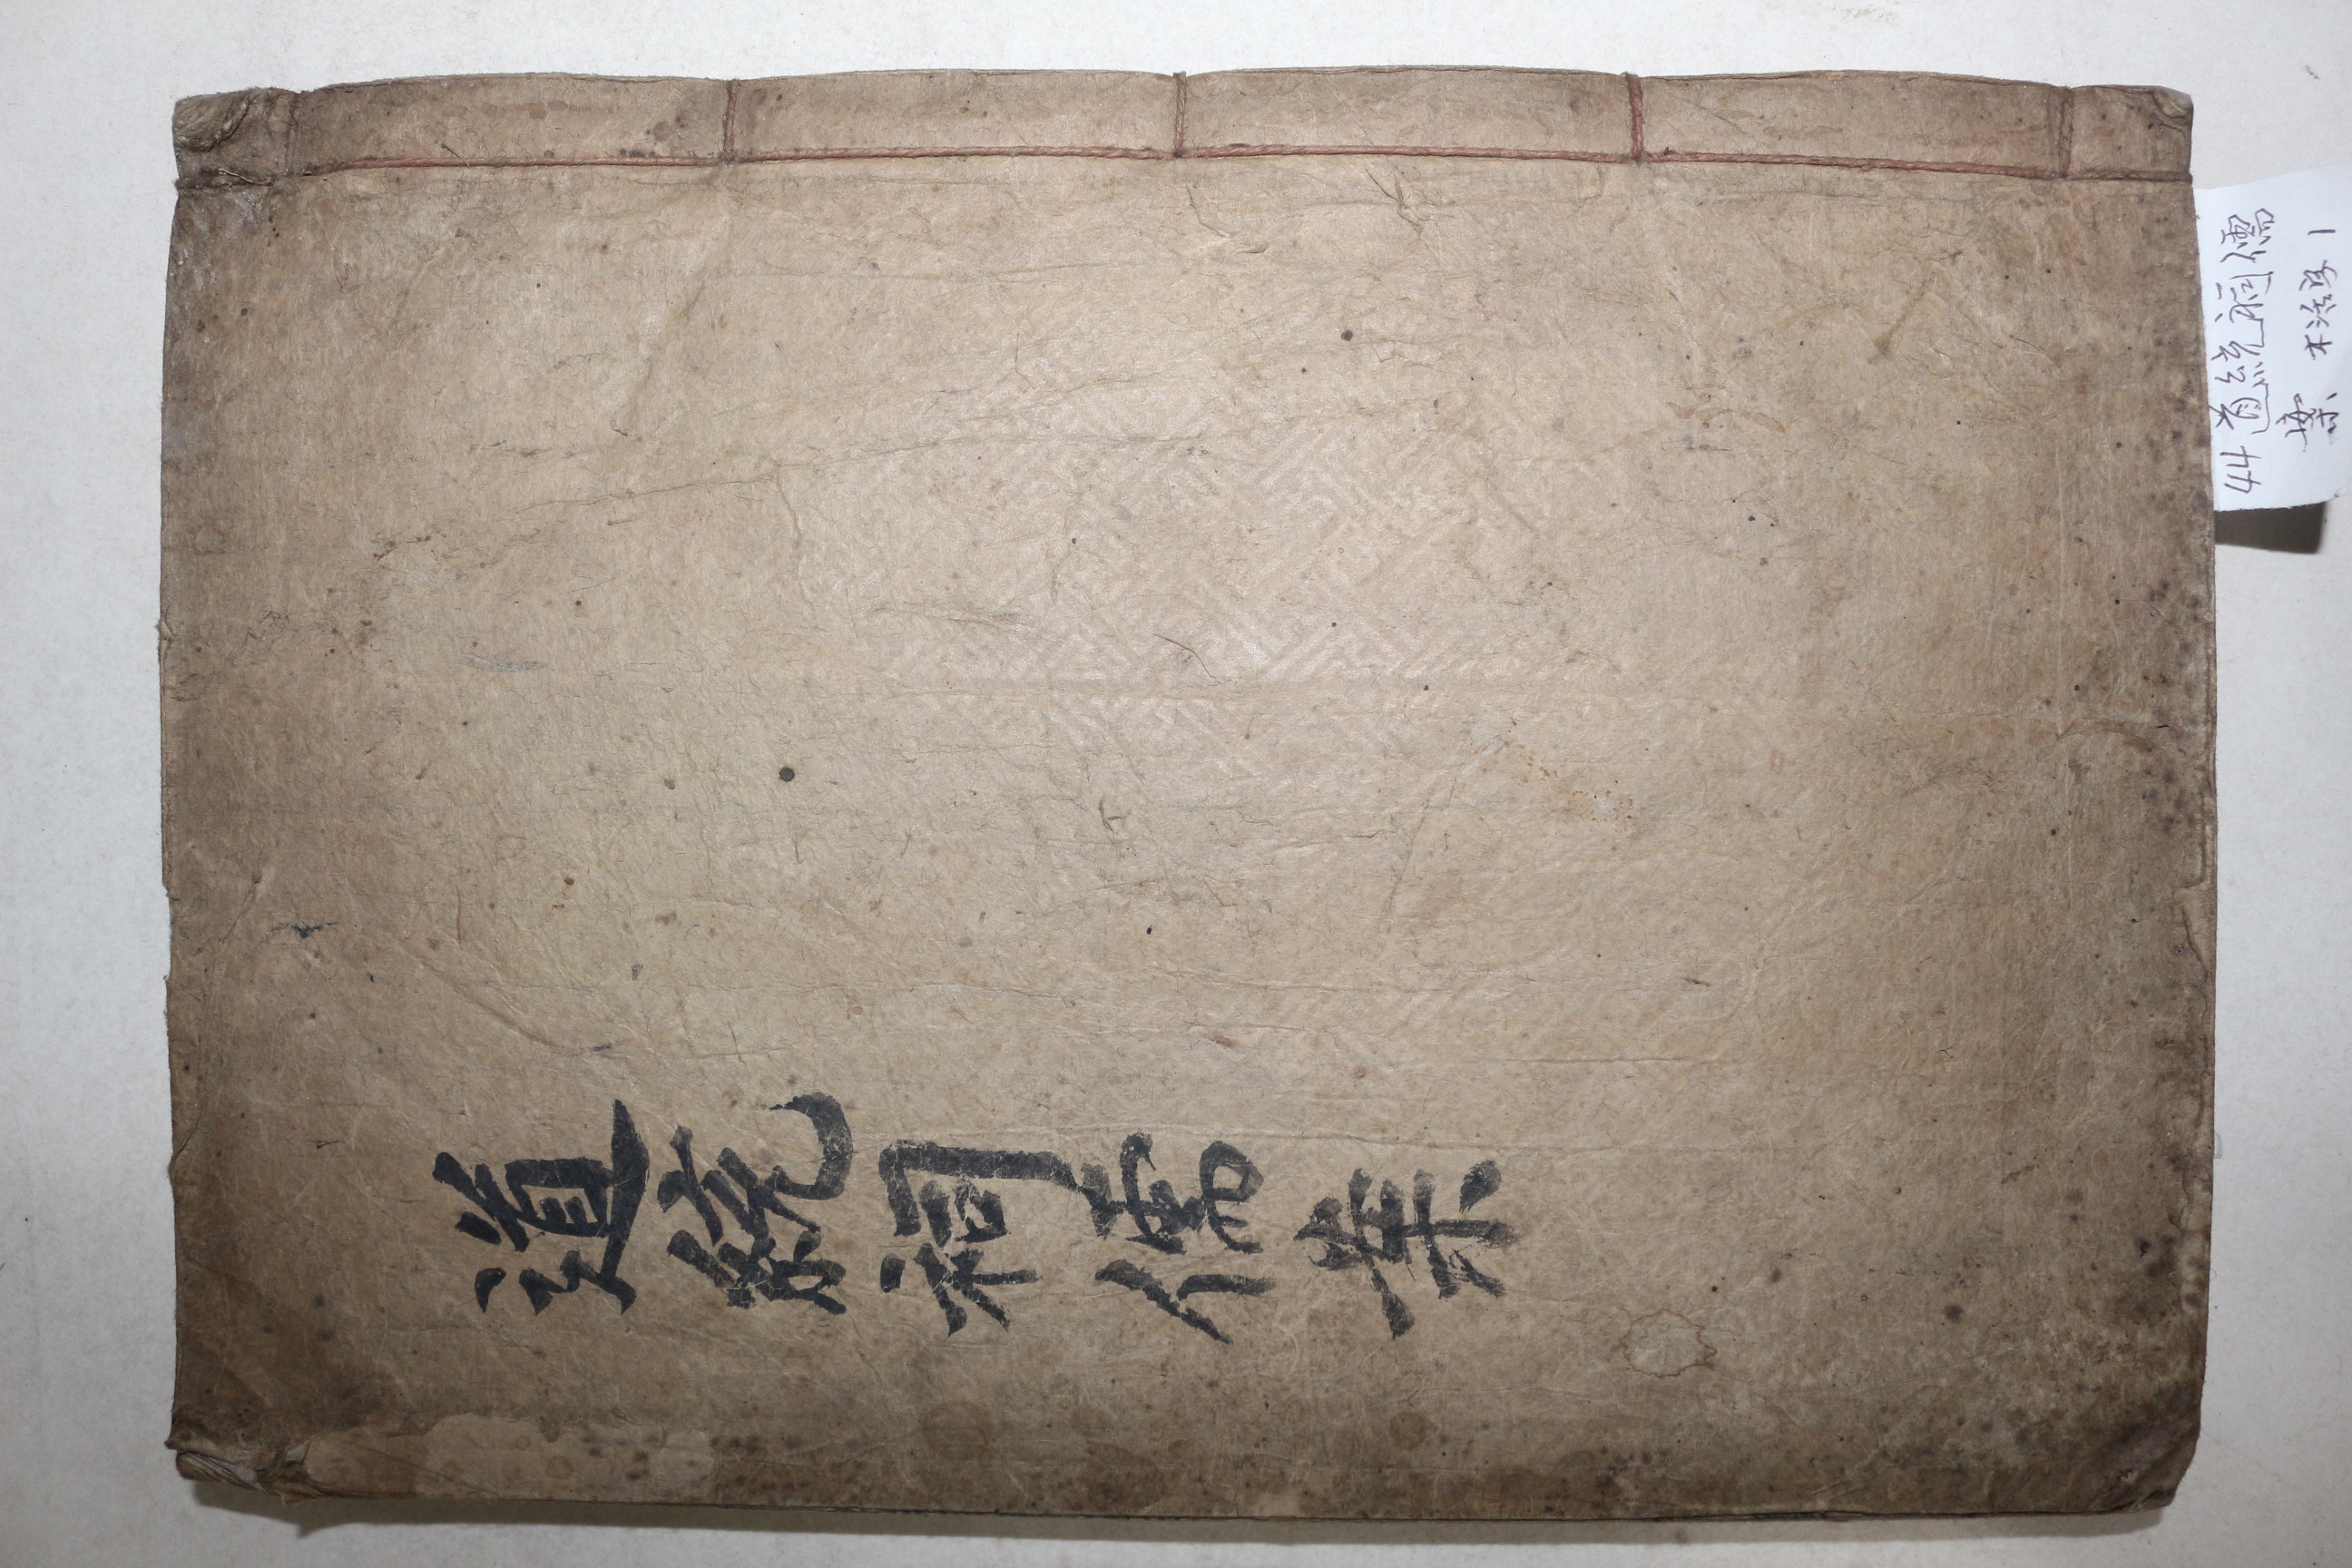 道統祠儒案
44 道統祠儒
案 木活字 1